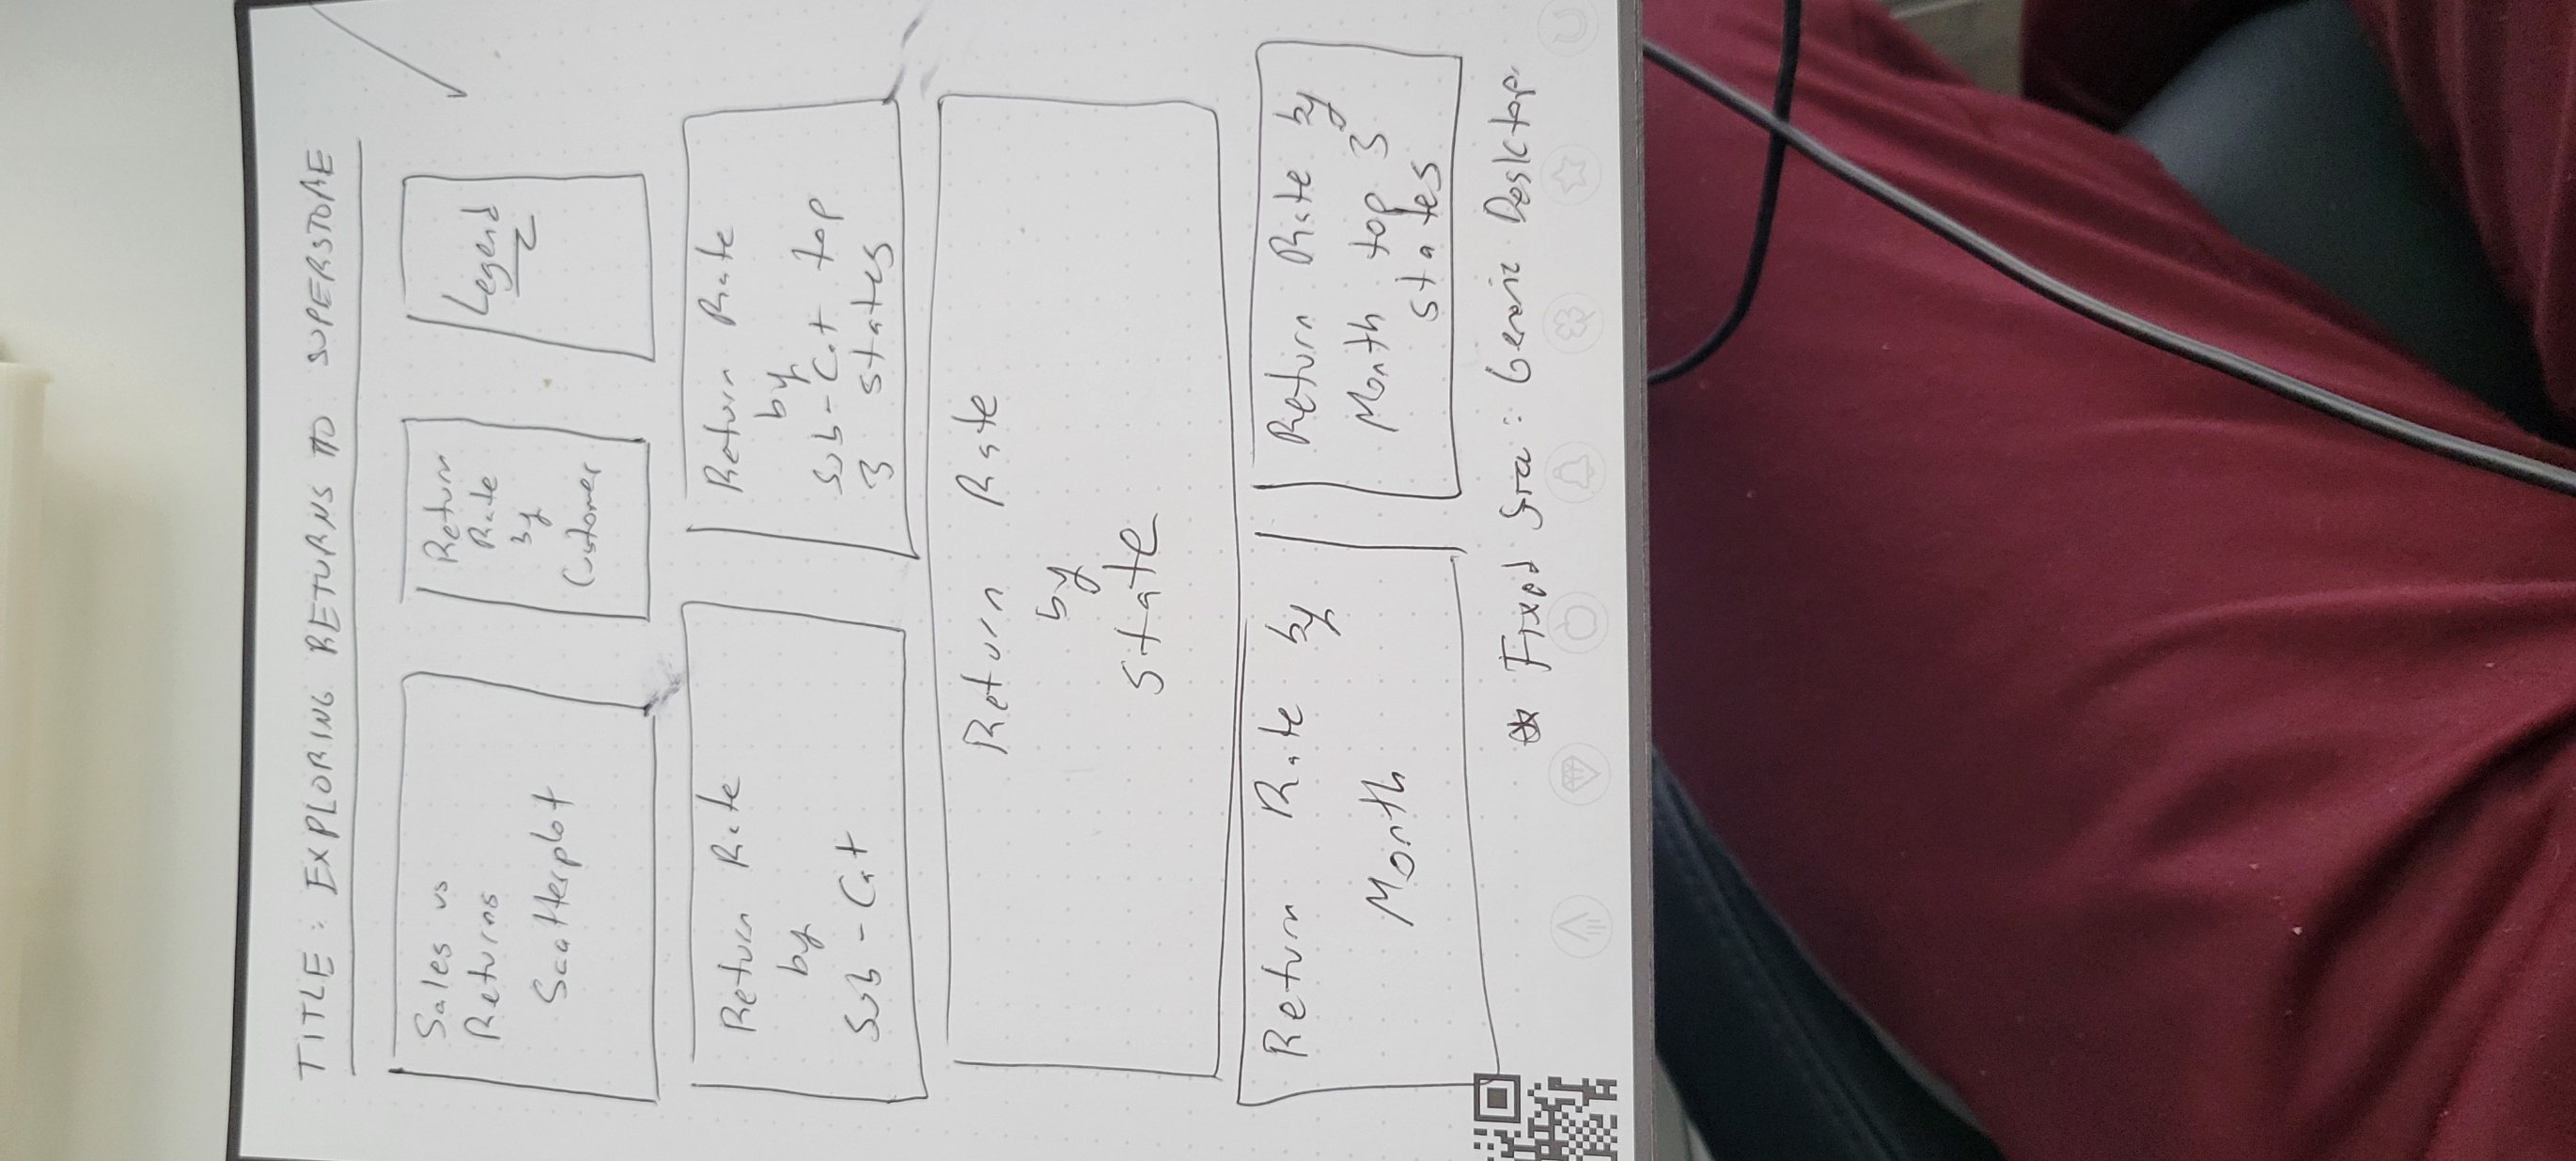 TITLE: EXPLORING RETURNS TO SUPERSTORE
Sales vs
Returns
Scatterplot
Return
Rate
by
Customer
Legend
Return Rate
by
Sub-Cat
Return Rate
by
Sub-Cat top
3 states
Return Rate
by
state
Return Rate by
Month
Return Rate by
Month top 3
states
* Fixed : Generic Desktop